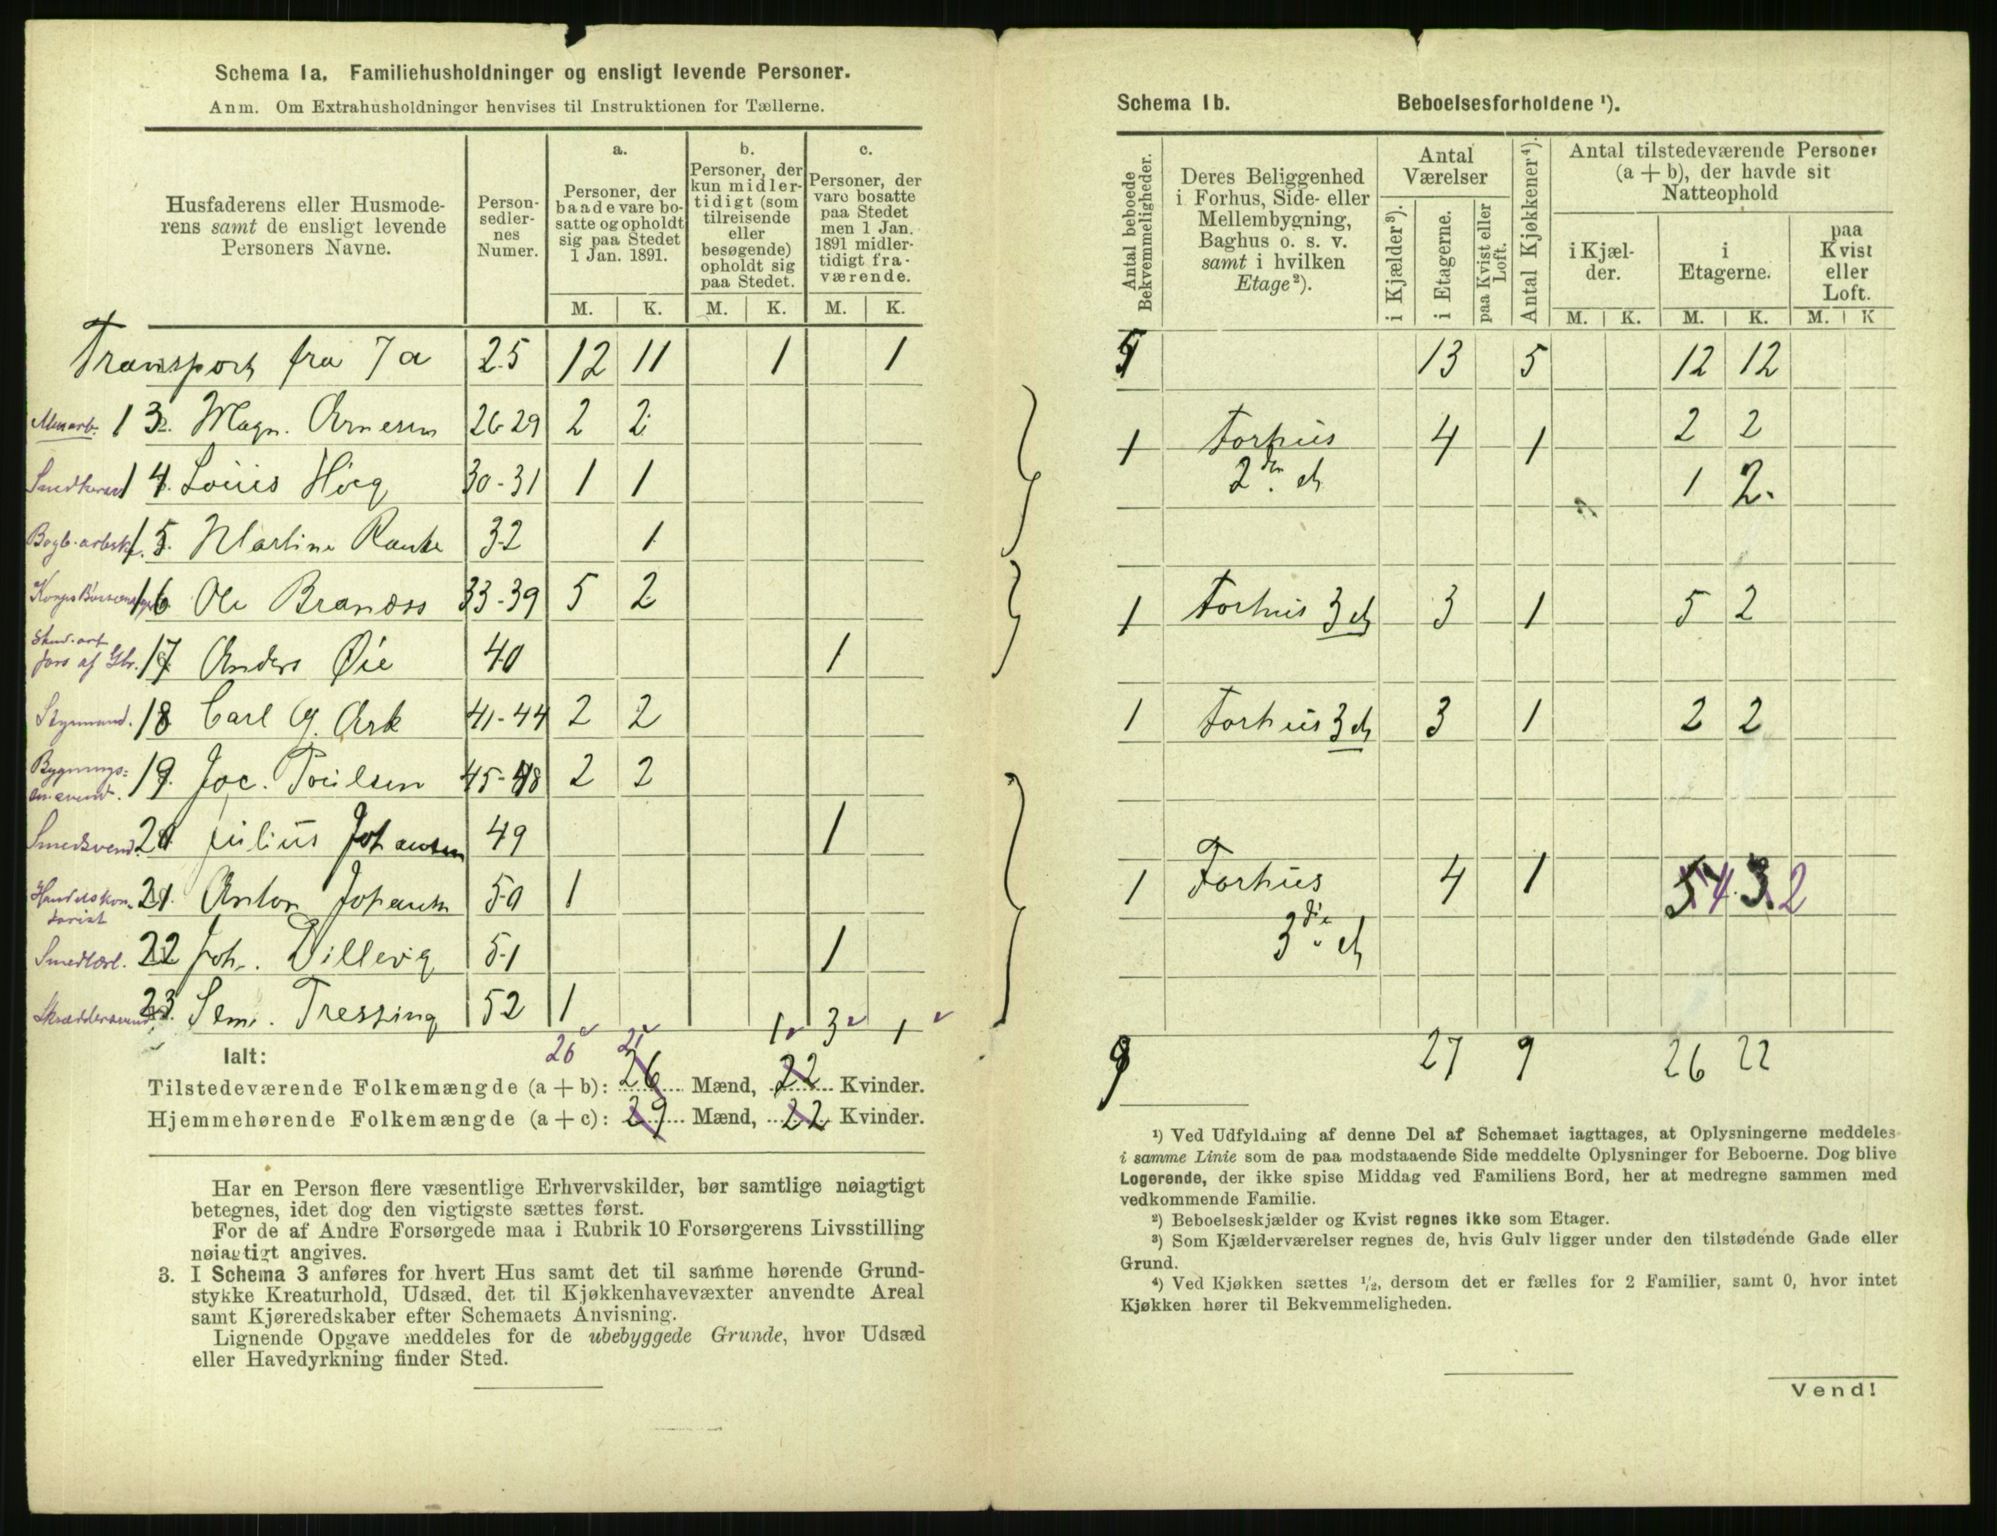 Schema 1a. Familiehusholdninger og ensligt levende Personer.
Anm. Om Extrahusholdninger henvises til Instruktionen for Tællerne.
Husfaderens eller Husmode-
rens samt de ensligt levende
Personers Navne.
Person-
sedler-
nes
Numer.
a.
Personer, der
baade vare bo-
satte og opholdt
sig paa Stedet
1 Jan. 1891.
b.
Personer, der
kun midler-
tidigt (som
tilreisende
eller
besøgende)
opholdt sig
paa Stedet.
c.
Personer, der
vare bosatte
paa Stedet
men 1 Jan.
1891 midler-
tidigt fra-
værende.
M. K. M. K. M. K.
Transport fra 7a 25 12 11 1 1
13. Magn. Arnesen 26-29 2 2
14. Louis Höeg 30-31 1 1
15. Martine 32 1
16 Ole Brandss 33-39 5 2
17 Anders Øie 40 1
Styrmand. 18 Carl G. Ark 41-44 2 2
Bygnings- 19. Joc. Poulsen 45-48 2 2
Smedsvend. 20 Julius Johansen 49 1
Handelskon-
torist 21. Anton Johansen 50 1
Smedlærl. 22 Joh. Dillevig 51 1
Skræddersvend 23. Sem. Tressing 52 1
26 21 1 3 1
Ialt:
Tilstedeværende Folkemængde (a + b): 26 Mænd, 22 Kvinder.
Hjemmehørende Folkemængde (a + c): 29 Mænd, 22 Kvinder.
Har en Person flere væsentlige Erhvervskilder, bør samtlige nøiagtigt
betegnes, idet dog den vigtigste sættes først.
For de af Andre Forsørgede maa i Rubrik 10 Forsørgerens Livsstilling
nøiagtigt angives.
3. I Schema 3 anføres for hvert Hus samt det til samme hørende Grund-
stykke Kreaturhold, Udsæd, det til Kjøkkenhavevæxter anvendte Areal
samt Kjøreredskaber efter Schemaets Anvisning.
Lignende Opgave meddeles for de ubebyggede Grunde, hvor Udsæd
eller Havedyrkning finder Sted.
Schema 1b. Beboelsesforholdene ¹).
Antal beboede
Bekvemmeligheder.
Deres Beliggenhed
i Forhus, Side- eller
Mellembygning,
Baghus o. s. v.
samt i hvilken
Etage²).
Antal
Værelser
i Kjælder³).
i Etagerne.
paa Kvist eller
Loft.
Antal Kjøkkener⁴).
Antal tilstedeværende Personer
(a + b), der havde sit
Natteophold
i Kjæl-
der.
i
Etagerne.
paa
Kvist
eller
Loft.
M. K. M. K. M. K
5 13 5 12 12
1 Forhus 4 1 2 2
2den et 1 2.
1 Forhus 3 et 3 1 5 2
1 Forhus 3 et 3 1 2 2
1 Forhus 4 1 5 4 3 2
3die et
9 27 9 26 22
¹) Ved Udfyldning af denne Del af Schemaet iagttages, at Oplysningerne meddeles
i samme Linie som de paa modstaaende Side meddelte Oplysninger for Beboerne. Dog blive
Logerende, der ikke spise Middag ved Familiens Bord, her at medregne sammen med
vedkommende Familie.
²) Beboelseskjælder og Kvist regnes ikke som Etager.
³) Som Kjælderværelser regnes de, hvis Gulv ligger under den tilstødende Gade eller
Grund.
⁴) Ved Kjøkken sættes ½, dersom det er fælles for 2 Familier, samt 0, hvor intet
Kjøkken hører til Bekvemmeligheden.
Vend!